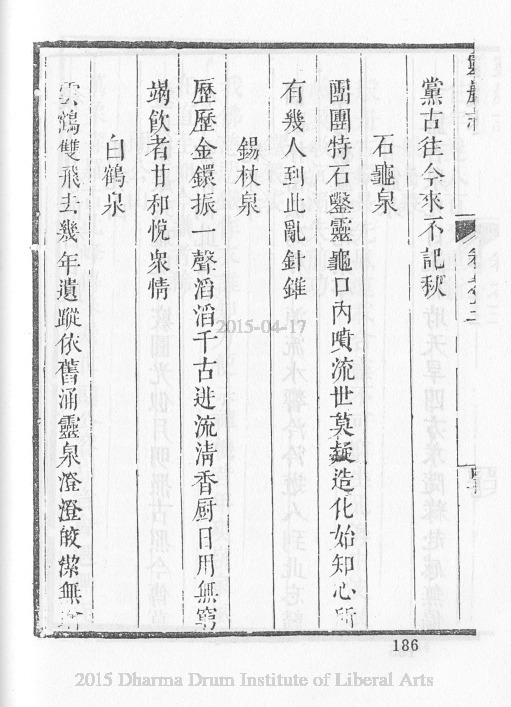 靈巖志
卷之三
黨古往今來不記秋
石龜泉
團團特石鑿靈龜口內噴流世莫疑造化始知心所
有幾人到此亂針錐
錫杖泉
歷歷金鐶振一聲滔滔千古迸流清香厨日用無窮
竭飲者甘和悅衆情
白鶴泉
雲鶴雙飛去幾年遺蹤依舊涌靈泉澄澄皎潔無
2015-04-17
186
2015 Dharma Drum Institute of Liberal Arts